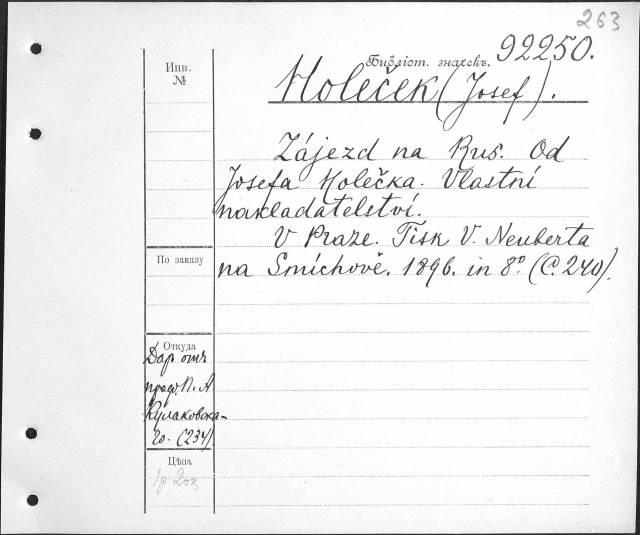 263
Библіот. значекъ. 92250.
Инв.
№
Holeček (Josef).
Zájezd na Rus. Od
Josefa Holečka. Vlastní
nakladatelství.
V Praze. Tisk V. Neuberta
na Smíchově. 1896. in 8° (C. 240).
По заказу
Откуда
Дар. отъ
проф. П. А.
Кулаковска-
го. (234)
Цѣна
1р 20к